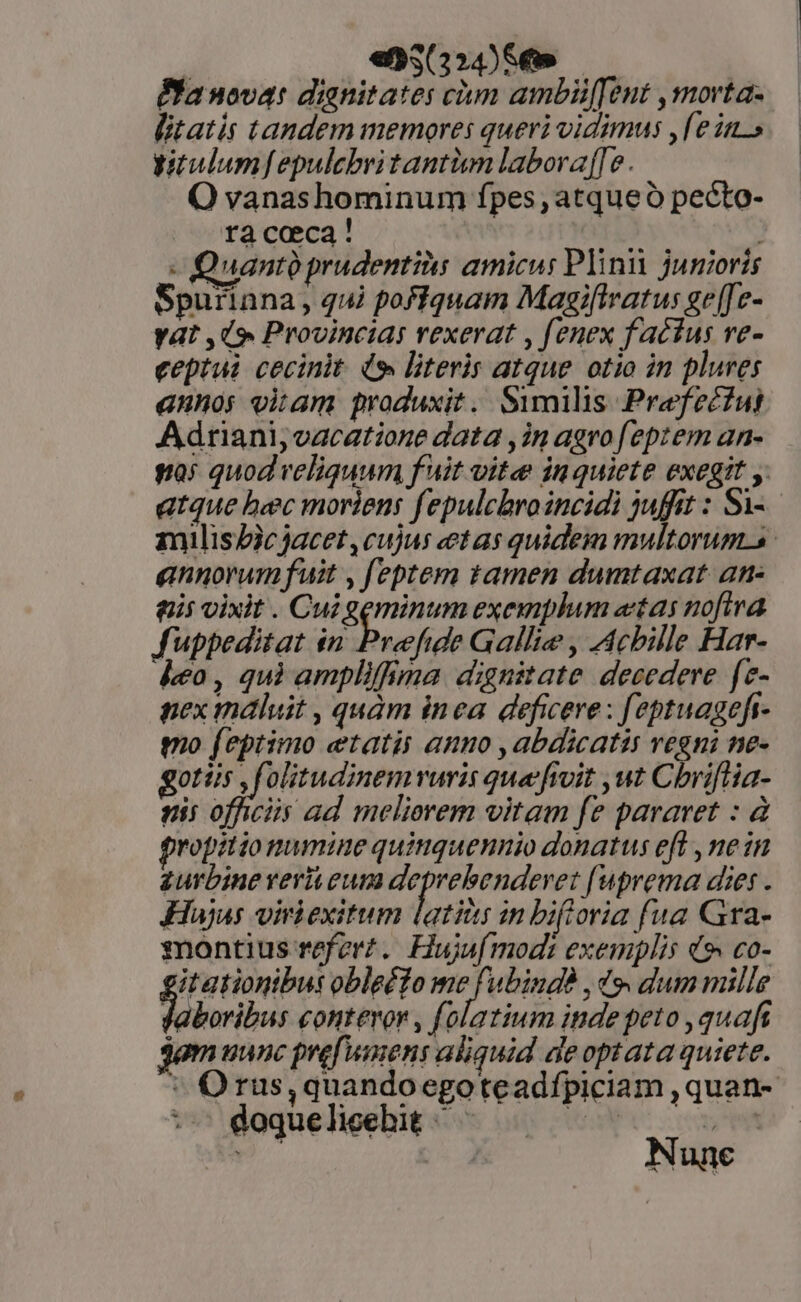 (324)
novas dignitates cùm ambiiſſent, morta-
litatis tandem memores queri vidimus, ſe in
titulum ſepulchri tantùm laboraſſe.
O vanas hominum ſpes, atque ò pecto-
ra cœca!
Quantò prudentiùs amicus Plinii junioris
Spurinna, qui poſtquam Magiſtratus geſſe-
rat, & Provincias rexerat, ſenex factus re-
ceptui cecinit & literis atque otio in plures
annos vitam produxit. Similis Præfectus
Adriani, vacatione data, in agro ſeptem an-
nos quod reliquum fuit vitæ in quiete exegit,
atque hæc moriens ſepulchro incidi juſſit: Si-
milis hìc jacet, cujus ætas quidem multorum
annorum fuit, ſeptem tamen dumtaxat an-
nis vixit. Cui geminum exemplum ætas noſtra
ſuppeditat in Præſide Galliæ, Achille Har-
læo, qui ampliſſima dignitate decedere ſe-
nex maluit, quàm in ea deficere: ſeptuageſi-
mo ſeptimo ætatis anno, abdicatis regni ne-
gotiis, ſolitudinem ruris quæſivit, ut Chriſtia-
nis officiis ad meliorem vitam ſe pararet: à
propitio numine quinquennio donatus eſt, ne in
turbine verù eum deprehenderet ſuprema dies.
Hujus viri exitum latiùs in hiſtoria ſua Gra-
montius refert. Hujuſmodi exemplis & co-
gitationibus oblecto me ſubindè, & dum mille
laboribus conteror, ſolatium inde peto, quaſi
jam nunc præſumens aliquid de optata quiete.
O rus, quando ego te adſpiciam, quan-
doque licebit
Nunc